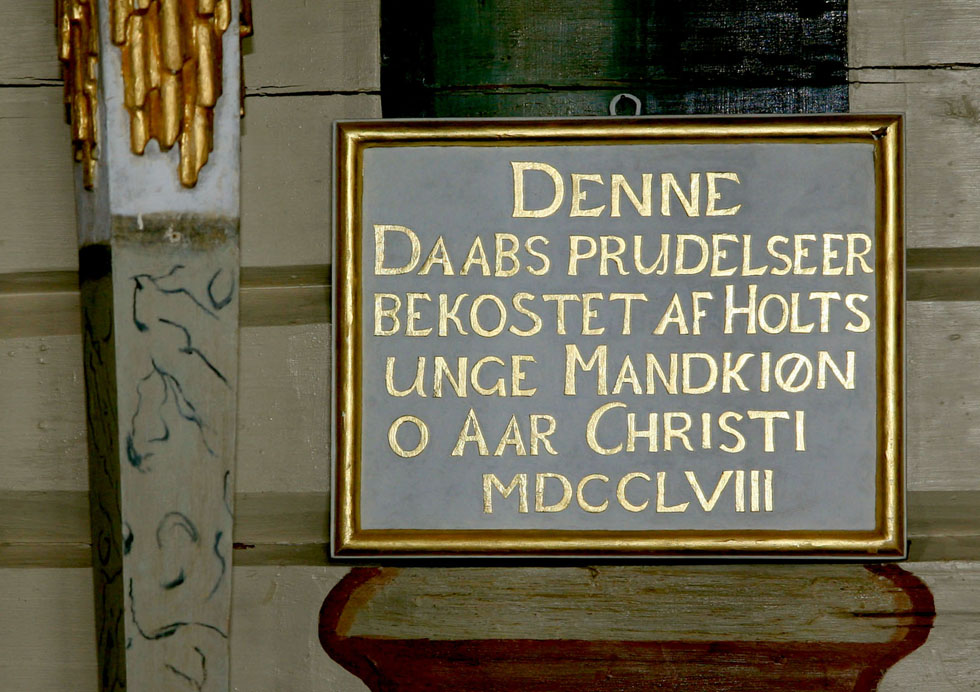 DENNE
DAABS PRUDELSEER
BEKOSTET AF HOLTS
UNGE MANDKIØN
O AAR CHRISTI
MDCCLVIII